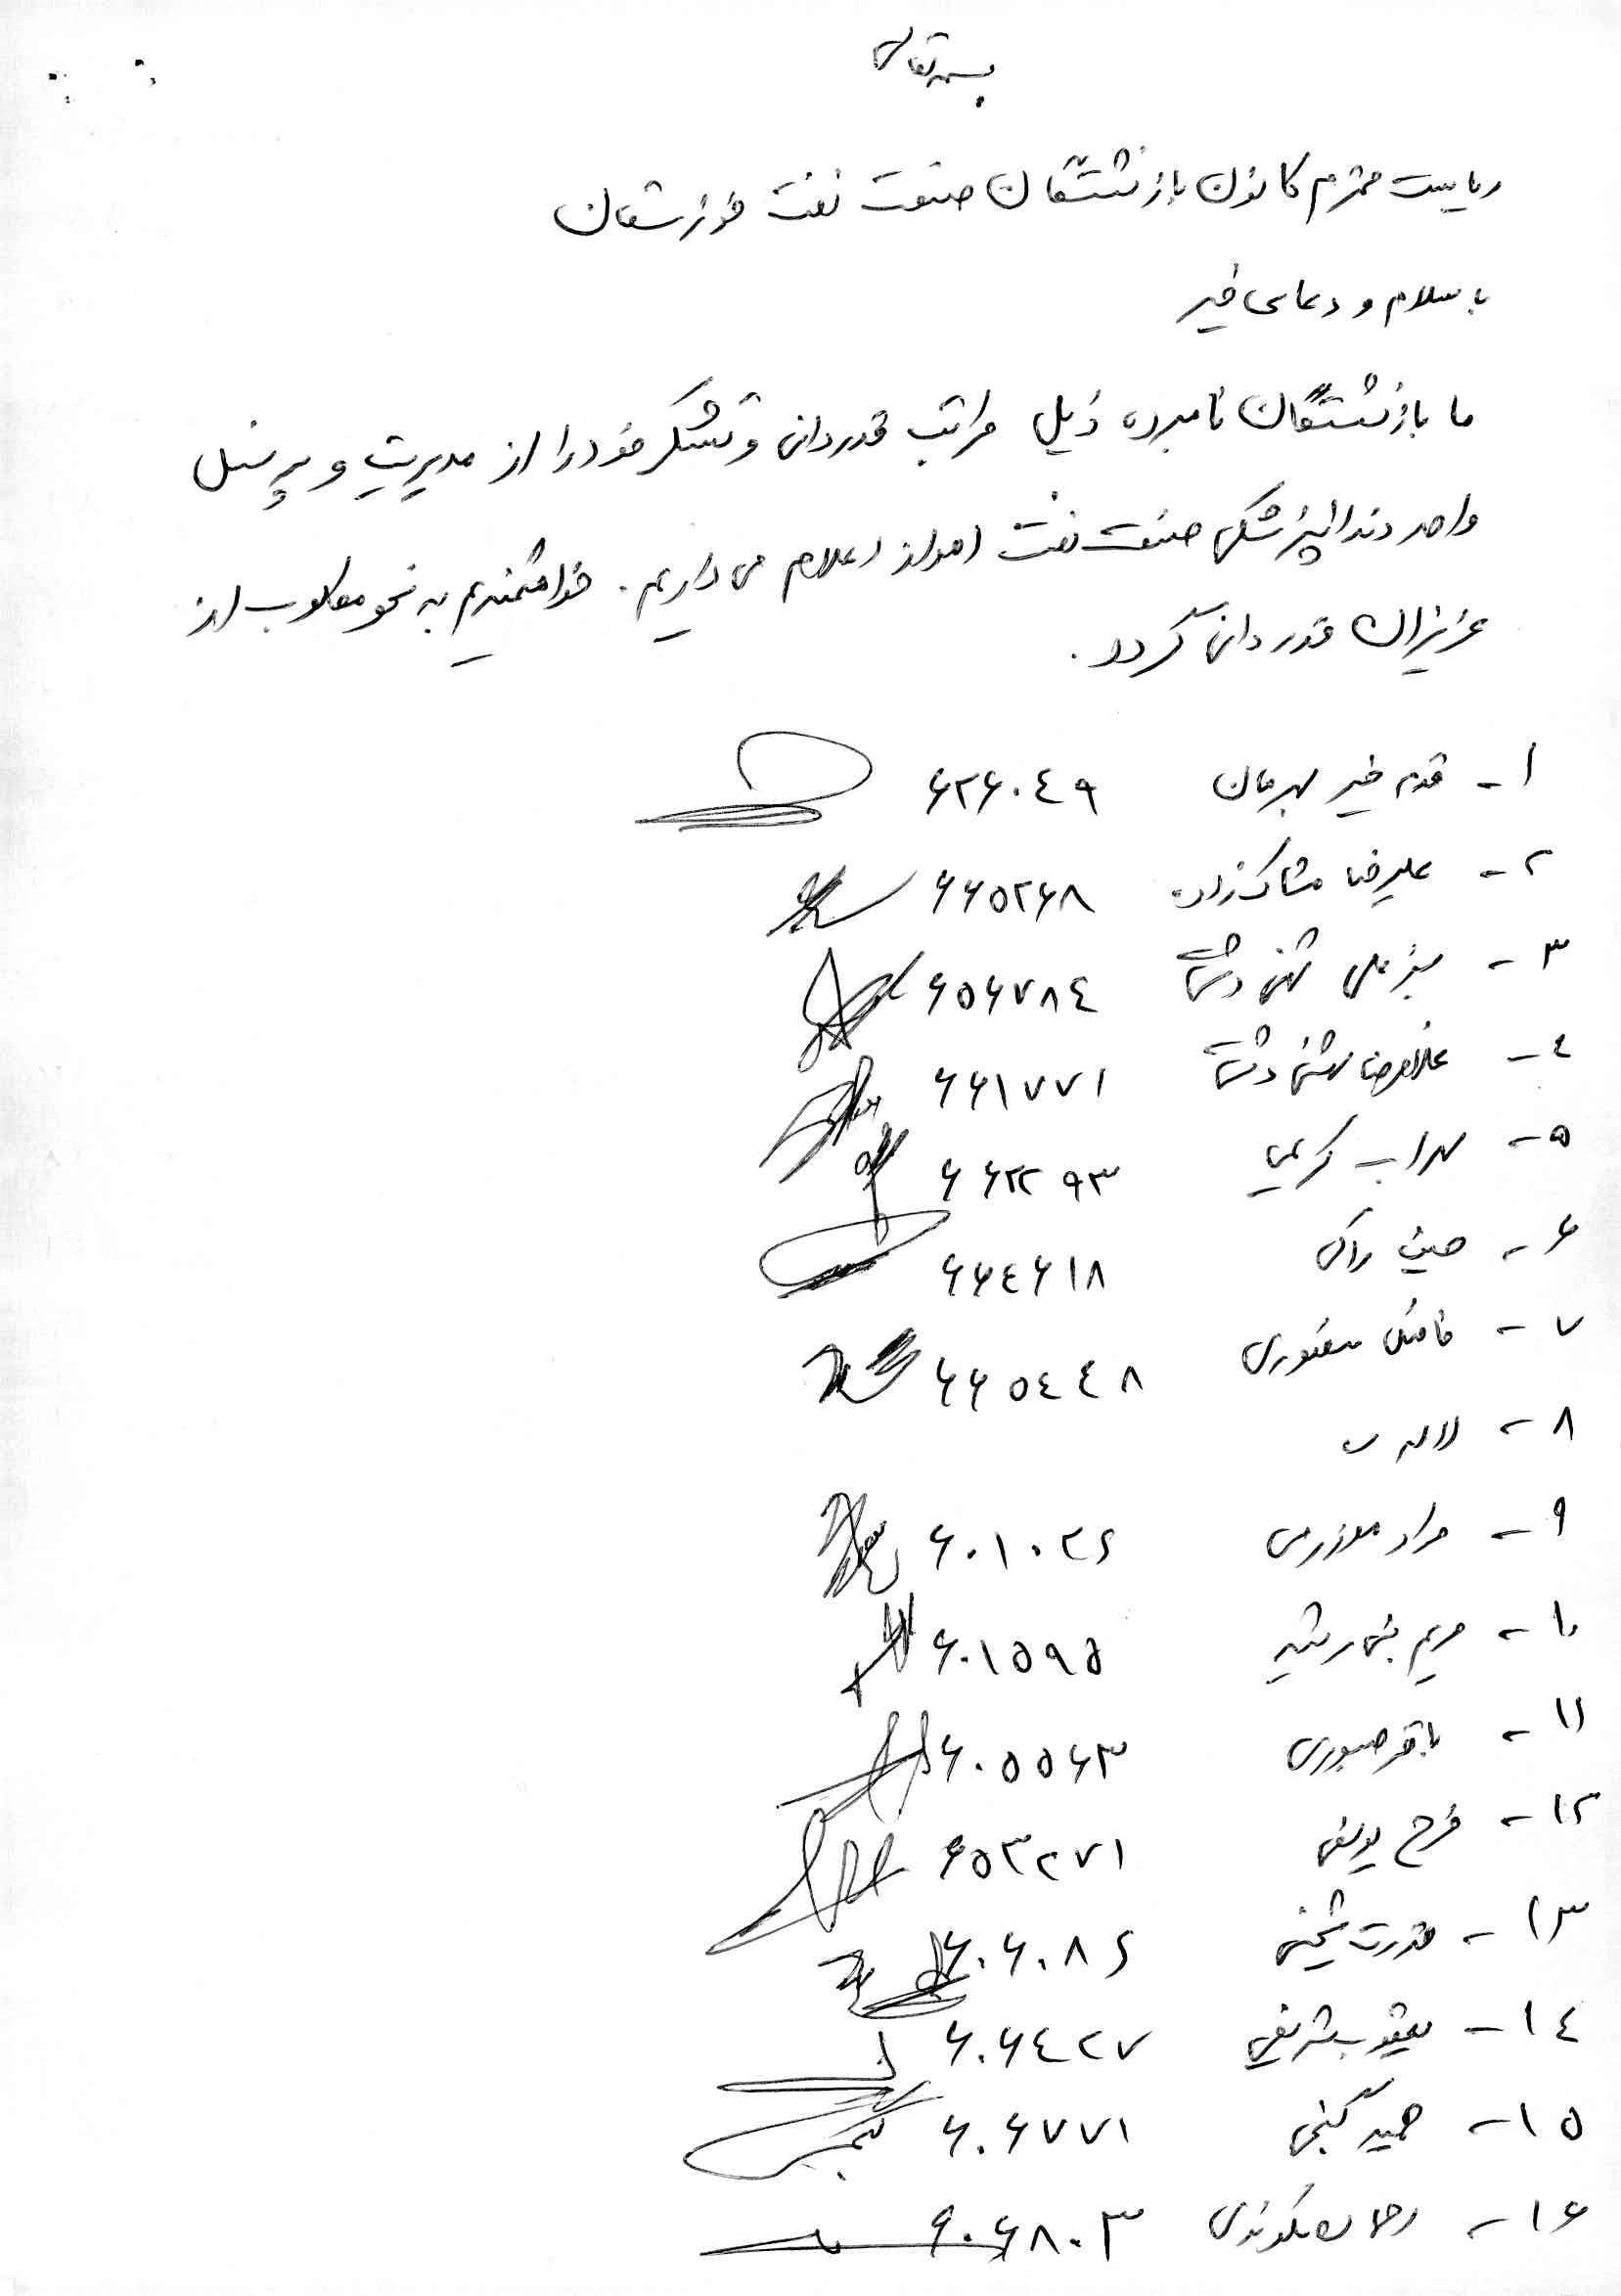 بسمه تعالی
ریاست محترم کانون بازنشستگان صنعت نفت خوزستان
با سلام و دعای خیر
ما بازنشستگان نامبرده ذیل مراتب قدردانی و تشکر خود را از مدیریت و پرسنل
واحد دندانپزشکی صنعت نفت اهواز اعلام می داریم. خواهشمندیم به نحو مطلوب از
عزیزان قدردانی گردد.
۱- قدم خیر بهرمان ۶۲۶۰۴۹
۲- علیرضا مشاک زاده ۶۶۵۲۶۸
۳- سبزعلی ۶۵۶۷۸۴
۴- غلامرضا ۶۶۱۷۷۱
۵- سهراب کریمی ۶۶۲۲۹۳
۶- حسین راکی ۶۶۴۶۱۸
۷- ۶۶۵۴۴۸
۸-
۹- مراد ۶۰۱۰۲۶
۱۰- مریم بنی رشید ۶۰۱۵۹۵
۱۱- باقر صبوری ۶۰۵۵۶۳
۱۲- فرج یوسفی ۶۵۳۲۷۱
۱۳- قدرت شیخی ۶۰۶۰۸۶
۱۴- یعقوب شریفی ۶۰۶۴۲۷
۱۵- حمید گنجی ۶۰۶۷۷۱
۱۶- رحمان ۶۰۶۸۰۳